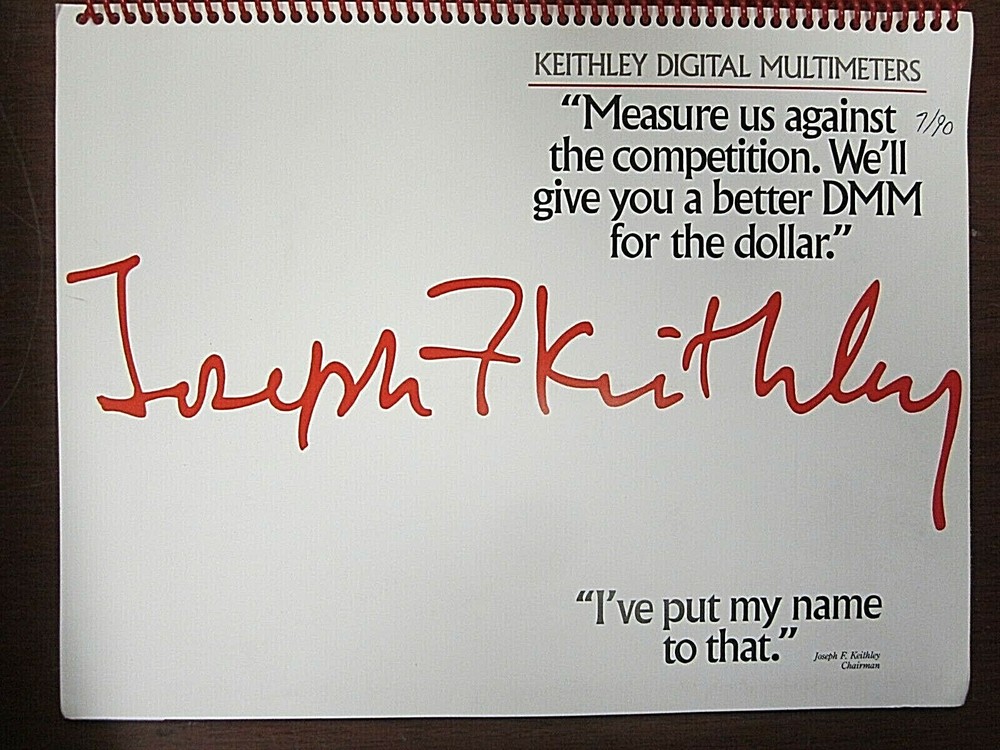 KEITHLEY DIGITAL MULTIMETERS
“Measure us against 7/90
the competition. We’ll
give you a better DMM
for the dollar.”
Joseph F Keithley
“I’ve put my name
to that.”
Joseph F. Keithley
Chairman